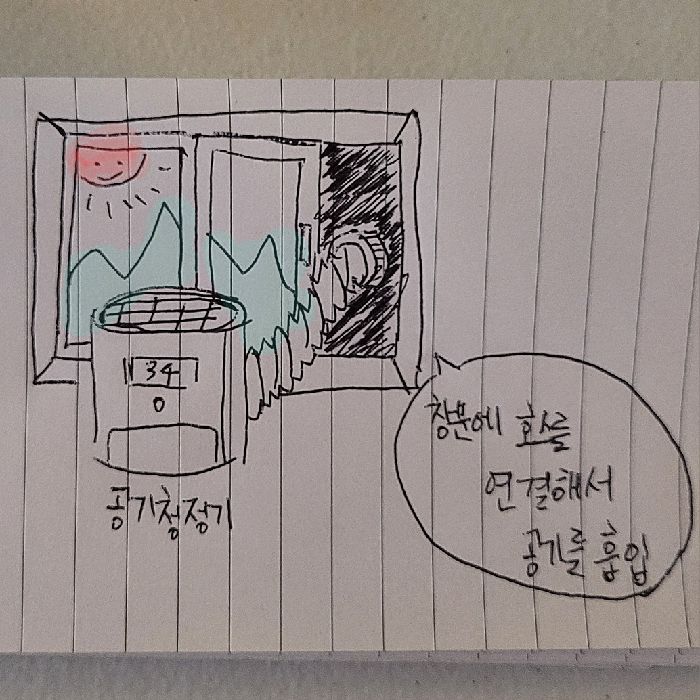 34
0
공기청정기
창문에 호스를
연결해서
공기를 흡입